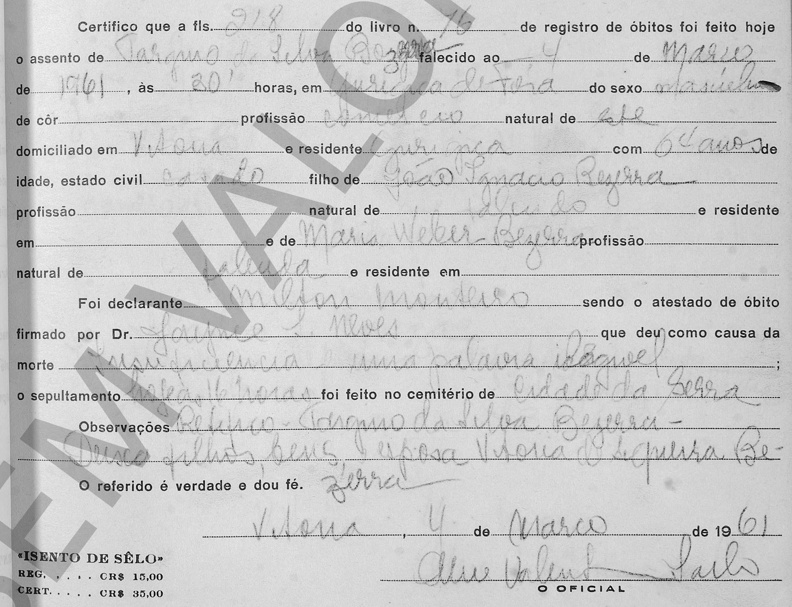 Certifico que a fls. 218 do livro n. 76 de registro de óbitos foi feito hoje
o assento de Targino da Silva Bezerra falecido ao 4 de Março
de 1961, às 20 horas, em de Fora do sexo masculino
de côr profissão natural de este
domiciliado em Vitoria e residente com 64 anos de
idade, estado civil casado filho de João Ignacio Bezerra
profissão natural de falecido e residente
em e de Maria Weber Bezerra profissão
natural de falecida e residente em
Foi declarante Milton Monteiro sendo o atestado de óbito
firmado por Dr. Neves que deu como causa da
morte insuficiencia uma palavra ilegivel ;
o sepultamento hoje, 16 horas foi feito no cemitério de Cidade da Serra
Observações Retifico - Targino da Silva Bezerra -
Deixa filhos, bens, esposa Vitoria de Siqueira Be-
O referido é verdade e dou fé. zerra
Vitoria, 4 de Março de 1961
«ISENTO DE SÊLO»
REG. . . . . CR$ 15,00
CERT. . . . . CR$ 35,00
O OFICIAL
SEM VALOR